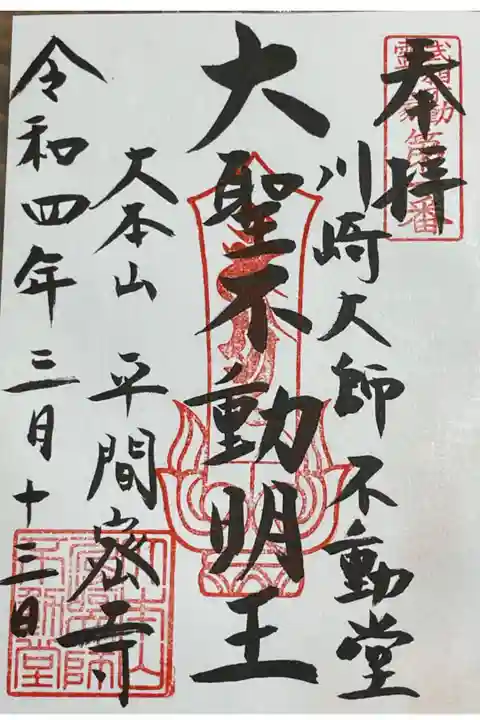 奉拝
川崎大師 不動堂
大聖不動明王
大本山 平間密寺
令和四年三月十三日
不動堂